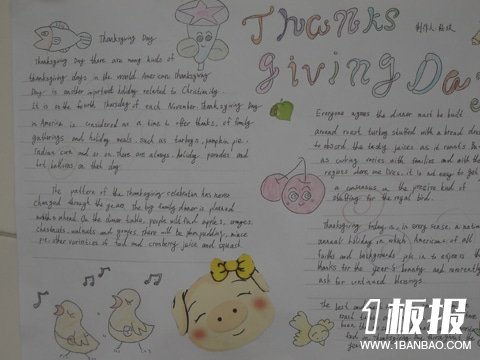 Thanks
Giving Day
制作人
Thanksgiving Day
Thanksgiving Day there are many kinds of
thanksgiving days in the world. American Thanksgiving
Day is another important holiday related to Christianity.
It is on the fourth Thursday of each November. Thanksgiving Day
in America is considered as a time to offer thanks, of family
gatherings and holiday meals. such as turkeys, pumpkin pie,
Indian corn and so on. There are always holiday parades and
hot balloons on that day.
The pattern of the Thanksgiving celebration has never
changed through the years. The big family dinner is planned
months ahead. On the dinner table, people will find apples, oranges,
chestnuts, walnuts and grapes. There will be plum pudding, mince
pie, other varieties of food and cranberry juice and squash.
Everyone agrees the dinner must be built
around roast turkey stuffed with a bread dressing
to absorb the tasty juices as it roasts. But
as cooking varies with families and with the
regions where one lives, it is not easy to get
a consensus on the precise kind of
stuffing for the royal bird.
Thanksgiving today is, in every sense, a national
annual holiday in which Americans of all
faiths and backgrounds join in to express their
thanks for the year's bounty and reverently
ask for continued blessings.
1板报
WWW.1BANBAO.COM